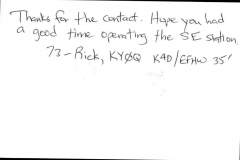 Thanks for the contact. Hope you had
a good time operating the SE station
73-Rick, KYØQ K4D/EFHW 35'